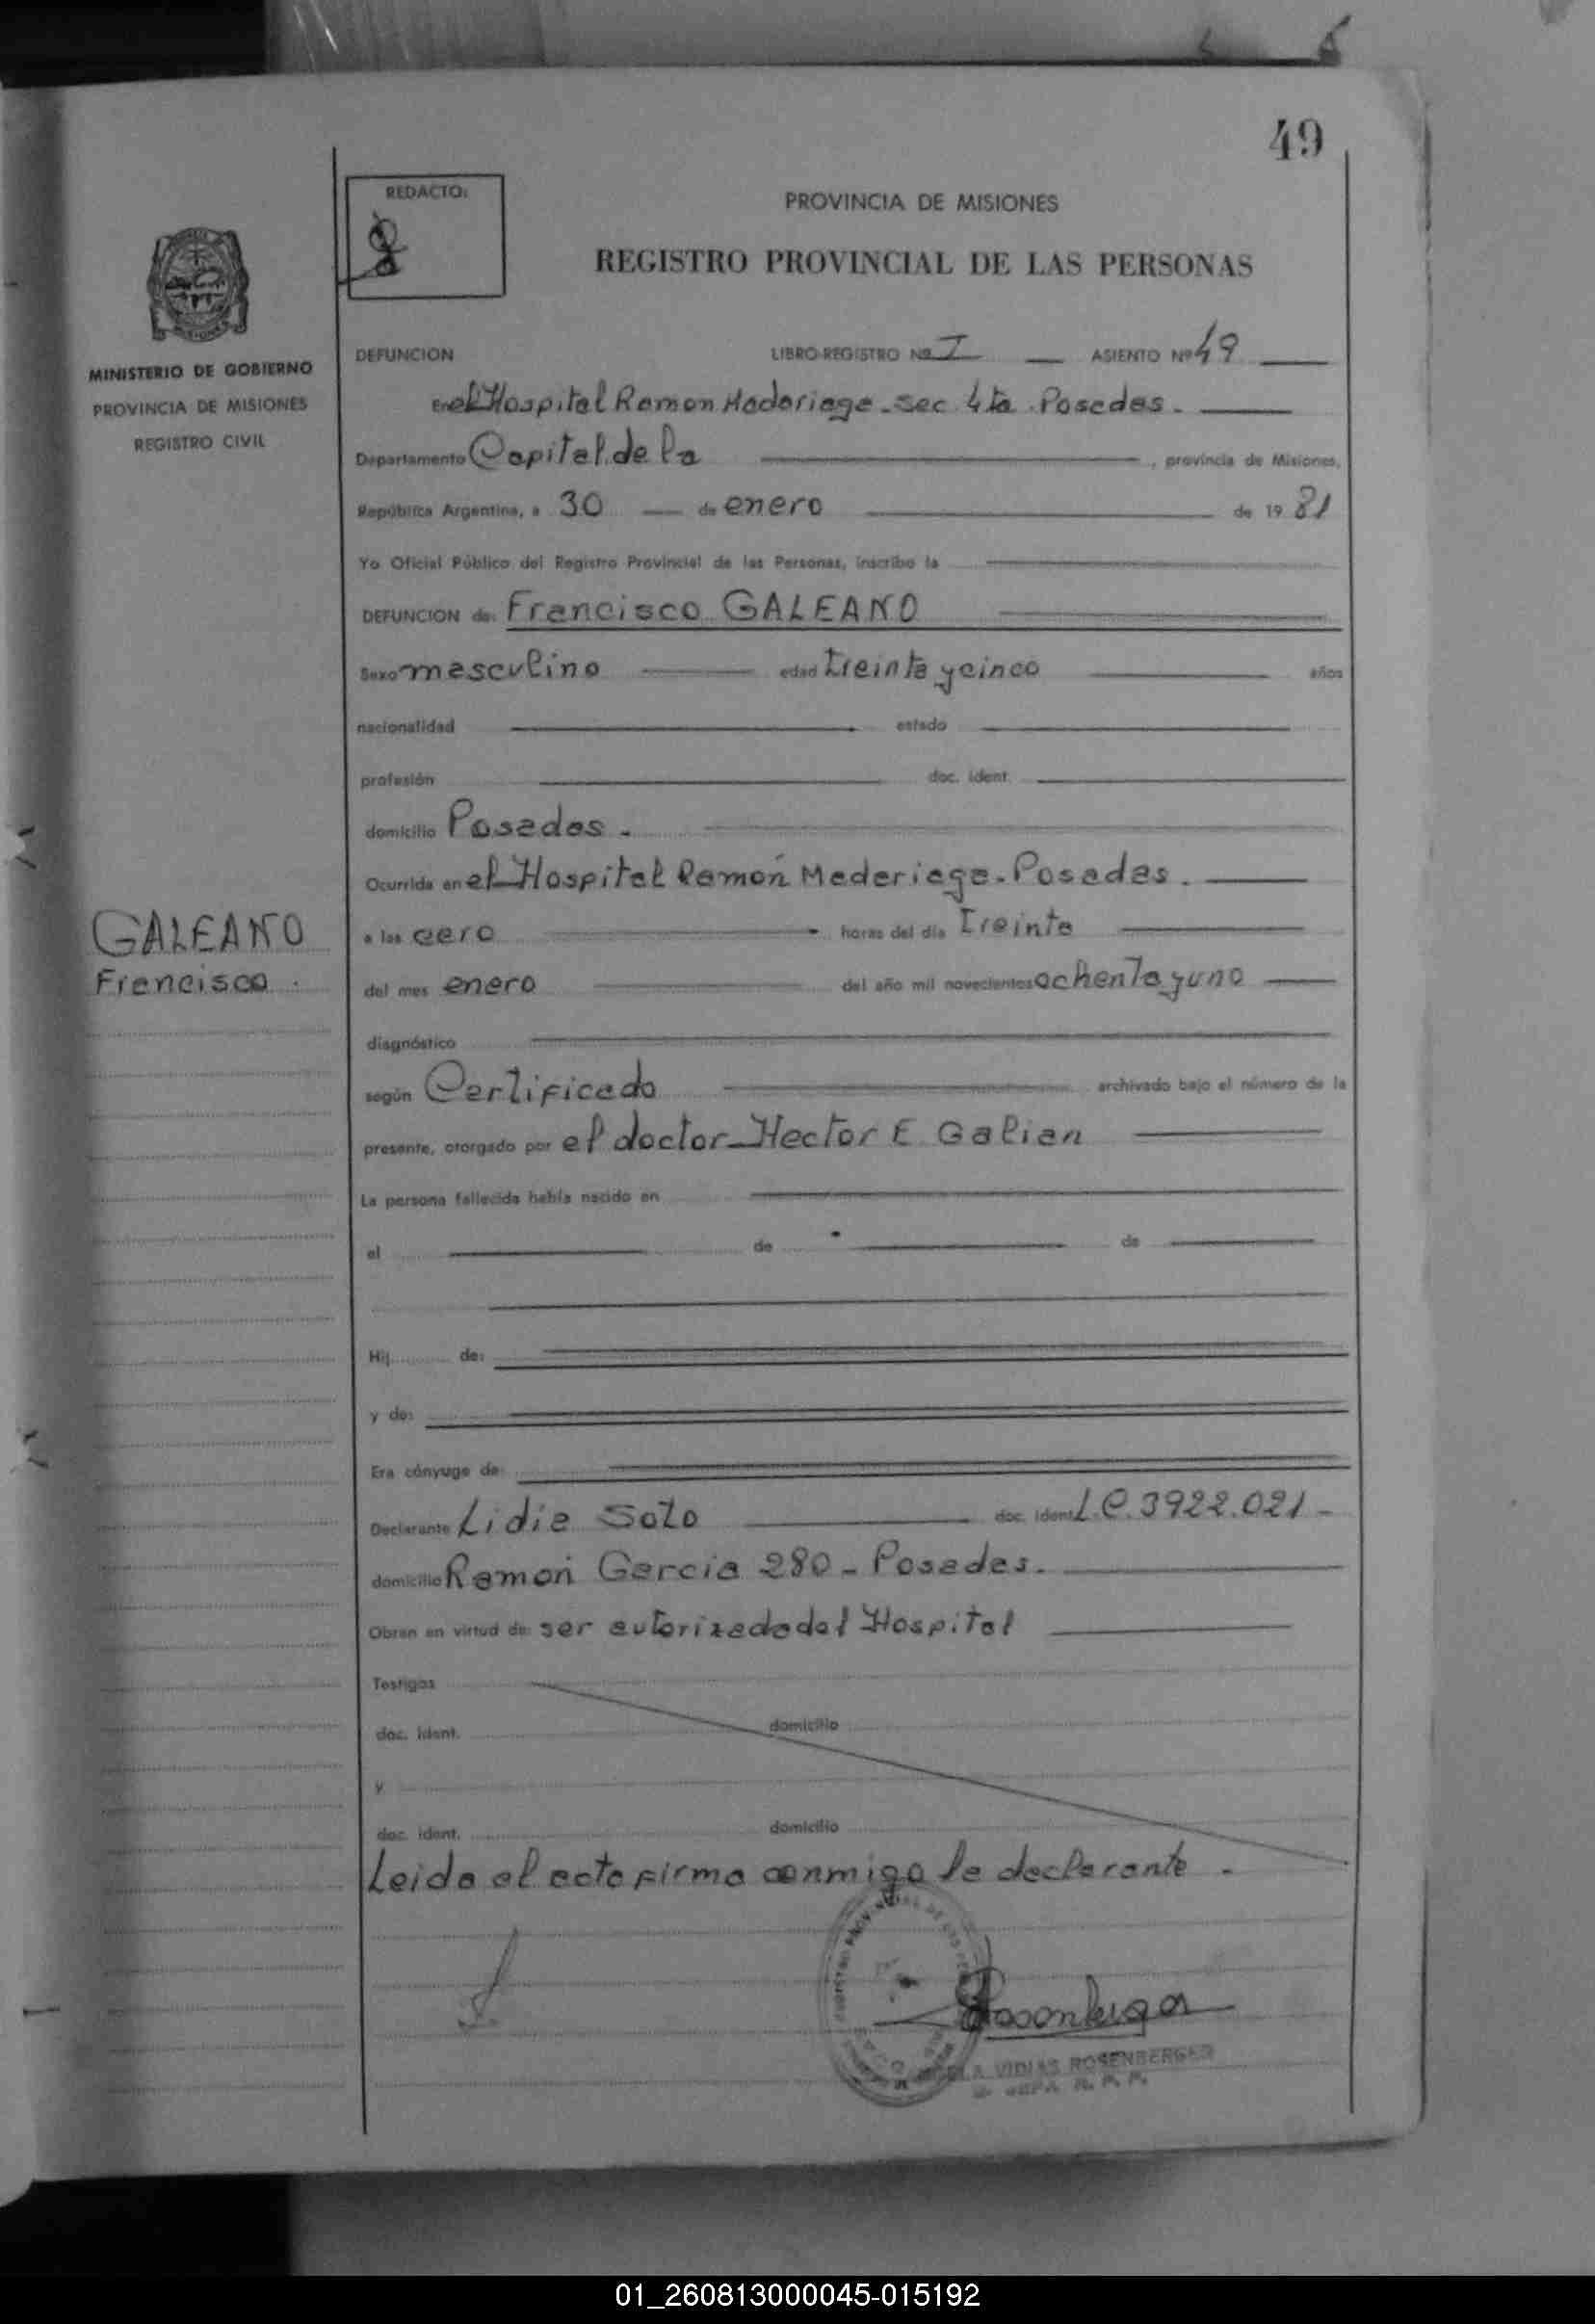 49
REDACTO:
PROVINCIA DE MISIONES
REGISTRO PROVINCIAL DE LAS PERSONAS
MINISTERIO DE GOBIERNO
PROVINCIA DE MISIONES
REGISTRO CIVIL
DEFUNCION LIBRO-REGISTRO No I ASIENTO Nº 49
En el Hospital Ramon Madariaga - sec 4ta Posadas.
Departamento Capital de la , provincia de Misiones,
República Argentina, a 30 de enero de 19 81
Yo Oficial Público del Registro Provincial de las Personas, inscribo la
DEFUNCION de: Francisco GALEANO
Sexo masculino edad treinta y cinco años
nacionalidad estado
profesión doc. ident.
domicilio Posadas.
Ocurrida en el Hospital Ramón Maderiaga - Posadas.
GALEANO
Francisco.
a las cero horas del día treinta
del mes enero del año mil novecientos ochenta y uno
diagnóstico
según Certificado archivado bajo el número de la
presente, otorgado por el doctor Hector E Galian
La persona fallecida había nacido en
el de de
Hij de:
y de:
Era cónyuge de:
Declarante Lidia Soto doc. ident. L.C. 3922.021 -
domicilio Ramon Garcia 280 - Posadas.
Obran en virtud de: ser autorizada del Hospital
Testigos
doc. ident. domicilio
y
doc. ident. domicilio
Leida el acta firma conmigo la declarante.
Rosenberger
VIDIAS ROSENBERGER
R. P. P.
01_260813000045-015192